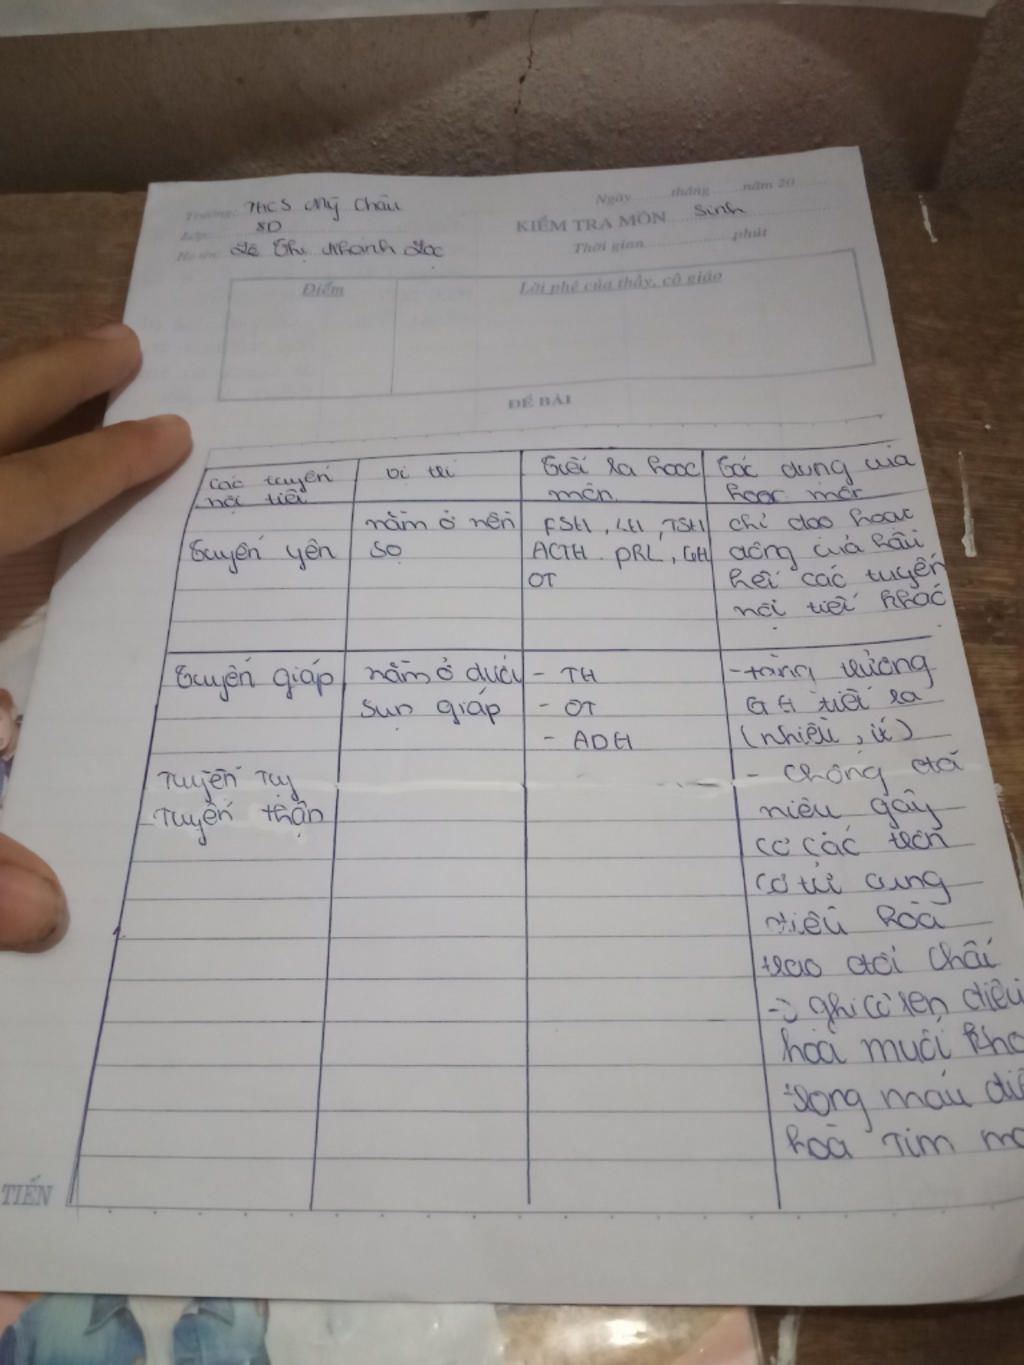 Trường: THCS Mỹ Châu
Lớp: 8D
Họ tên: Lê Thị Khánh Lộc
Ngày ........ tháng ........ năm 20 ........
KIỂM TRA MÔN Sinh
Thời gian .................... phút
Điểm
Lời phê của thầy, cô giáo
ĐỀ BÀI
Các tuyến nội tiết
vị trí
tiết ra hooc môn
tác dụng của hooc môn
tuyến yên
nằm ở nền
sọ
FSH, LH, TSH
ACTH. PRL, GH
OT
chỉ đạo hoạt
động của hầu
hết các tuyến
nội tiết khác
tuyến giáp
nằm ở dưới
sụn giáp
- TH
- OT
- ADH
- tăng trưởng
GH tiết ra
(nhiều, ít)
- chống đái
niệu gây
co các trơn
cơ tử cung
điều hòa
trao đổi chất
tuyến tụy
tuyến thận
điều
hoà muối kho
trong máu đi
hoà tim mạ
TIẾN